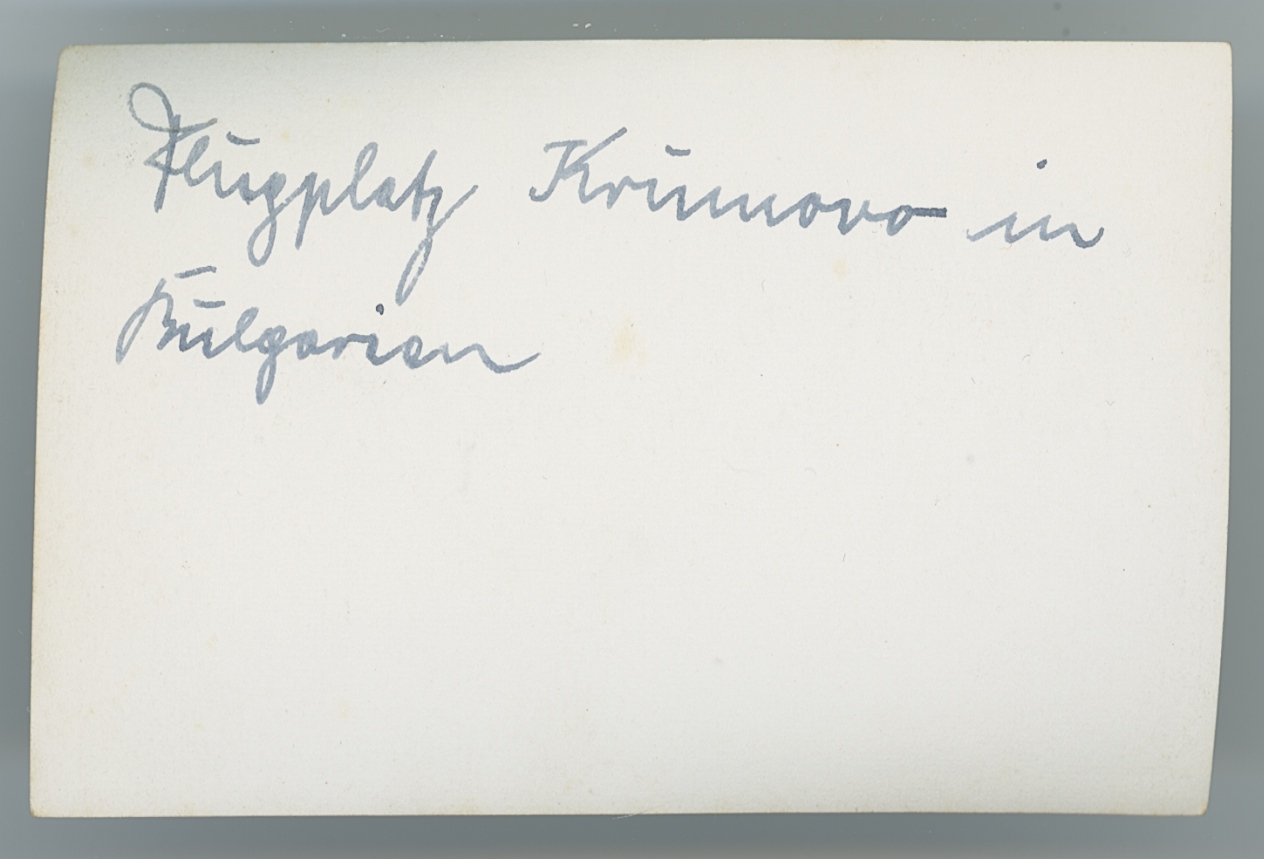 Flugplatz Krumovo in
Bulgarien